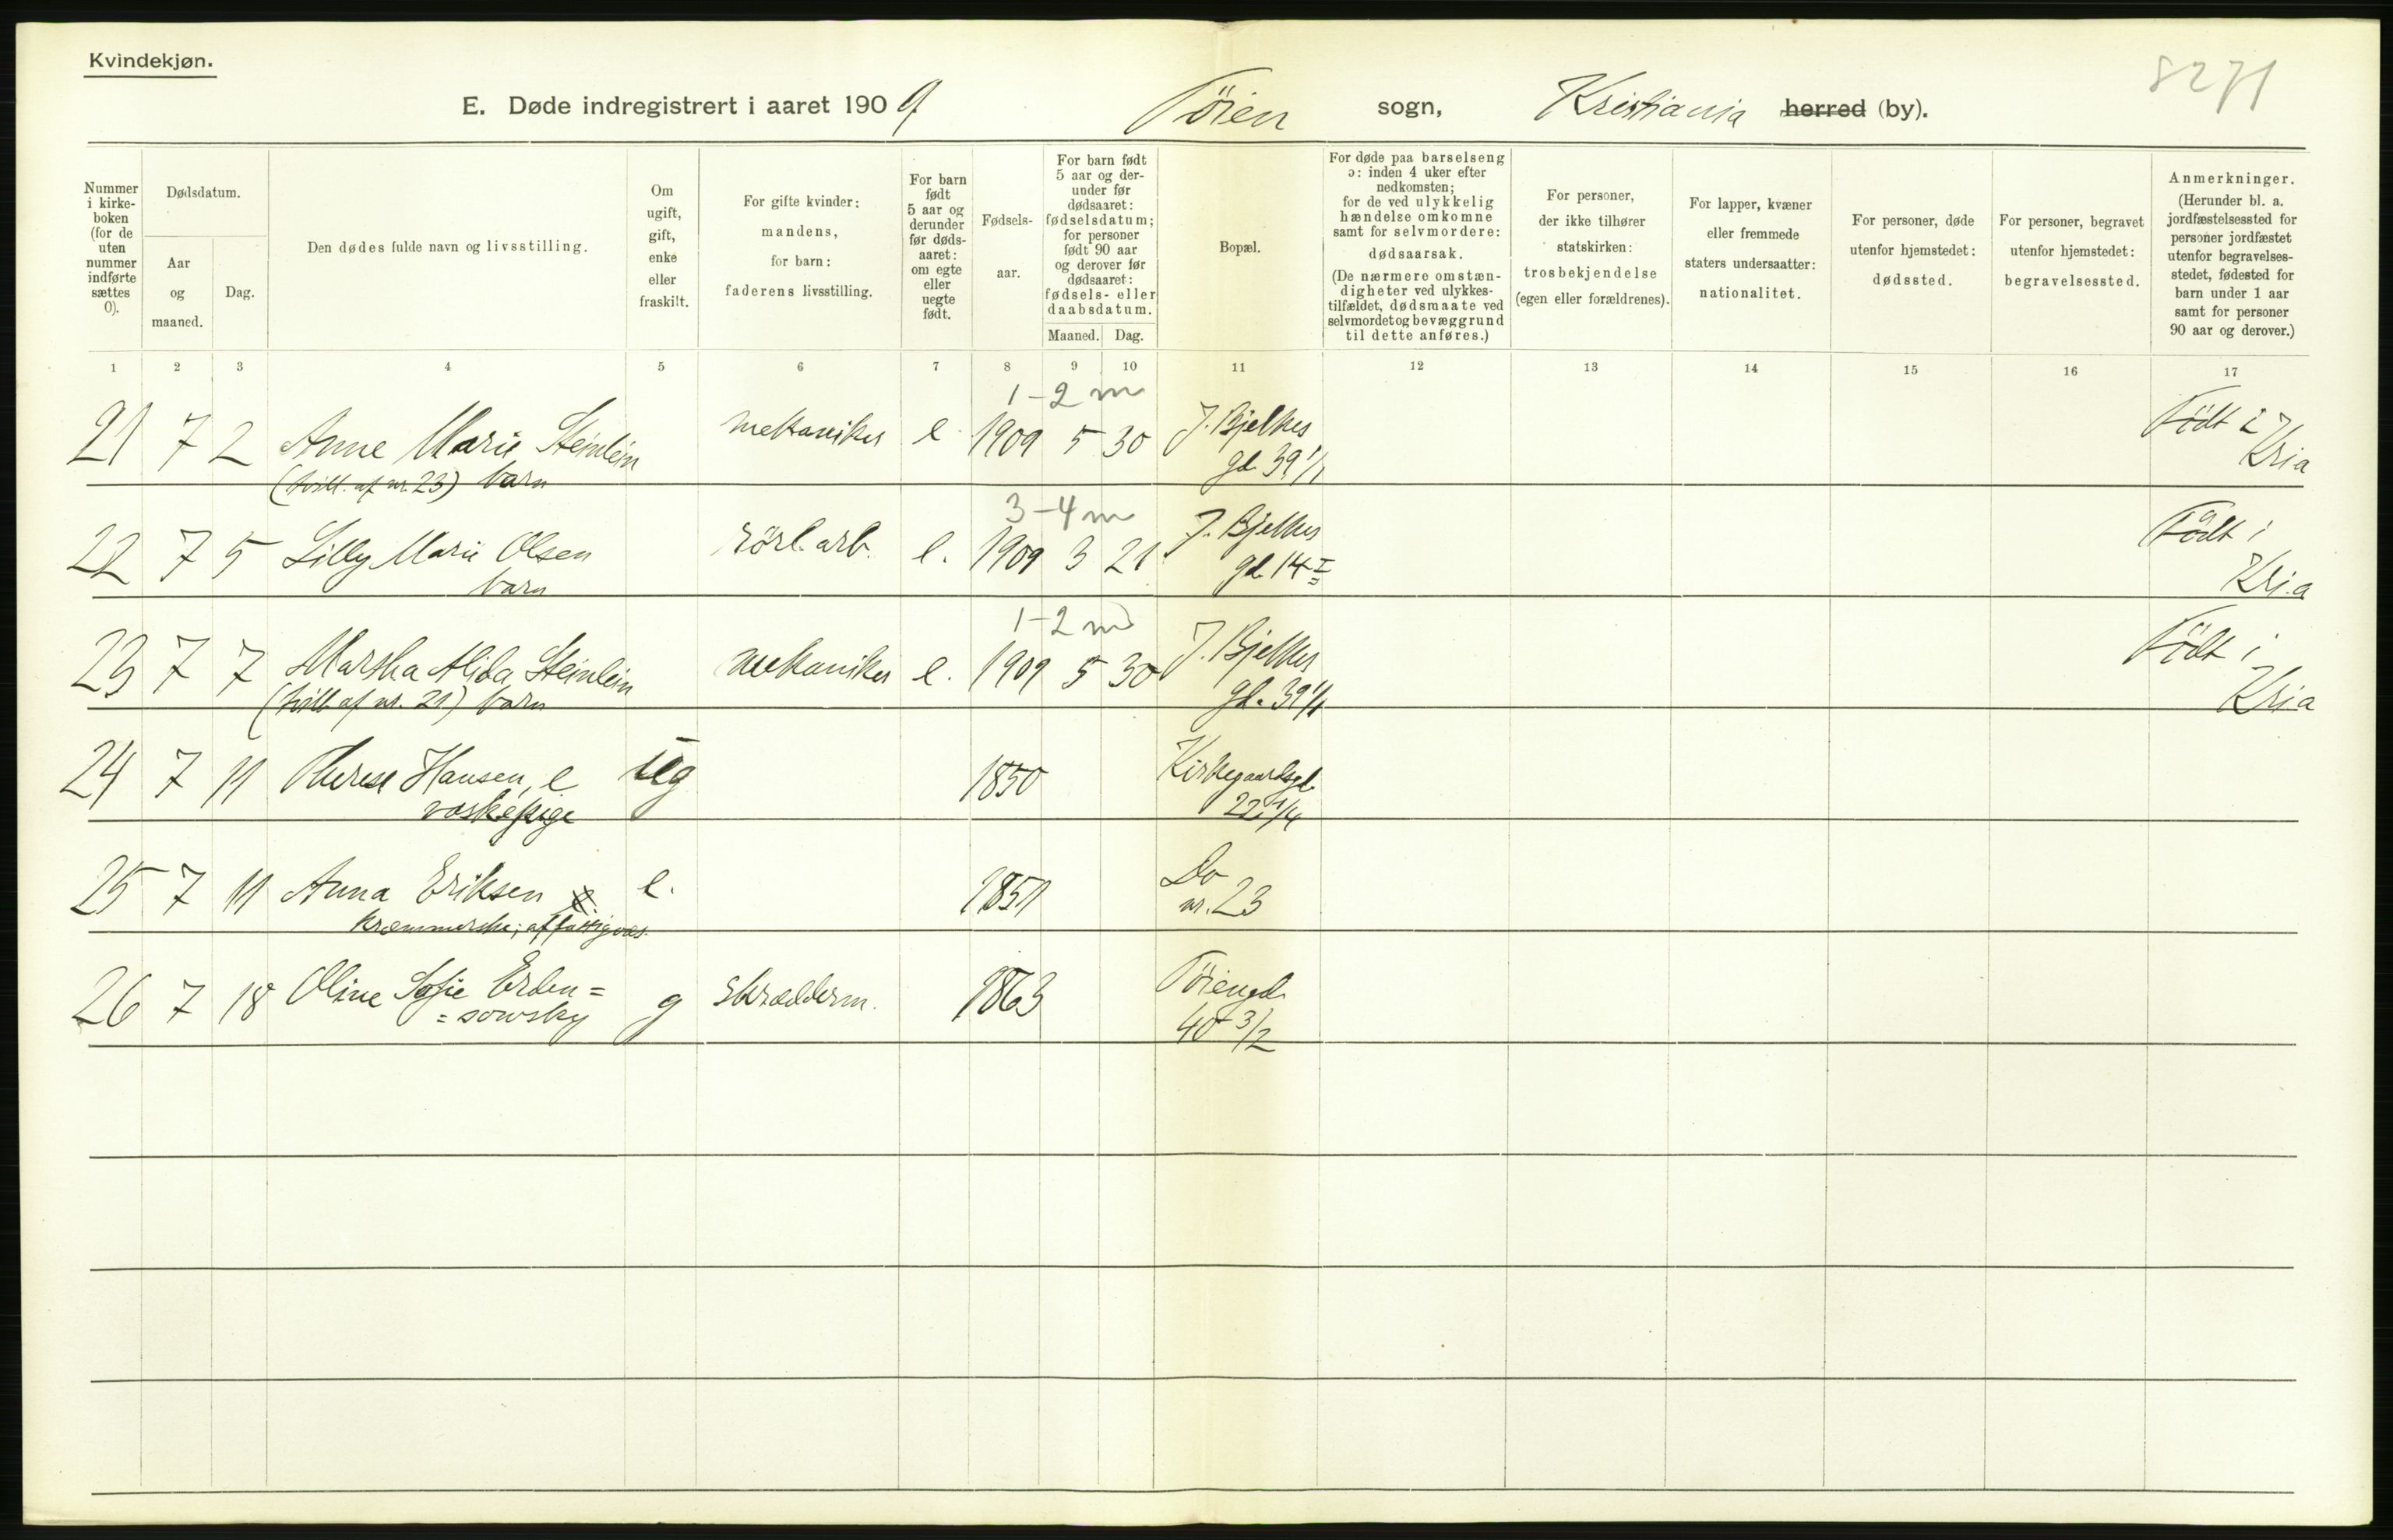 Kvindekjøn.
8271
E. Døde indregistrert i aaret 1909 Töien sogn, Kristiania herred (by).
Nummer i kirke- boken (for de uten nummer indførte sættes 0).
Dødsdatum.
Aar og maaned.
Dag.
Den dødes fulde navn og livsstilling.
Om ugift, gift, enke eller fraskilt.
For gifte kvinder: mandens, for barn: faderens livsstilling.
For barn født 5 aar og derunder før døds- aaret: om egte eller uegte født.
Fødsels- aar.
For barn født 5 aar og der- under før dødsaaret: fødselsdatum; for personer født 90 aar og derover før dødsaaret: fødsels- eller daabsdatum.
Maaned. Dag.
Bopæl.
For døde paa barselseng ɔ: inden 4 uker efter nedkomsten; for de ved ulykkelig hændelse omkomne samt for selvmordere: dødsaarsak. (De nærmere omstæn- digheter ved ulykkes- tilfældet, dødsmaate ved selvmordet og bevæggrund til dette anføres.)
For personer, der ikke tilhører statskirken: trosbekjendelse (egen eller forældrenes).
For lapper, kvæner eller fremmede staters undersaatter: nationalitet.
For personer, døde utenfor hjemstedet: dødssted.
For personer, begravet utenfor hjemstedet: begravelsessted.
Anmerkninger. (Herunder bl. a. jordfæstelsessted for personer jordfæstet utenfor begravelses- stedet, fødested for barn under 1 aar samt for personer 90 aar og derover.)
1 2 3 4 5 6 7 8 9 10 11 12 13 14 15 16 17
1-2 m
21 7 2 Anne Marie Steinlein mekaniker e 1909 5 30 J. Bjelkes Födt i
(tvill. af nr. 23) barn gd. 39 1/1 Kria
3-4 m
22 7 5 Lilly Marie Olsen rörl. arb. e. 1909 3 21 J. Bjelkes Födt i
barn gd 14 I Kri.a
1-2 m
23 7 7 Marsha Alida Steinlein mekaniker e. 1909 5 30 J. Bjelkes Födt i
(tvill. af nr. 21) barn gd. 39 1/1 Kria
24 7 11 Therese Hansen, e ug 1850 Kirkegaardsgd.
vaskepige 22 1/4
25 7 11 Anna Eriksen e. 1851 Do
kræmmerske; af fattigvæs. nr. 23
26 7 18 Oline Sofie Erden= g skrædderm. 1863 Töiengd.
=sowsky 40 3/2